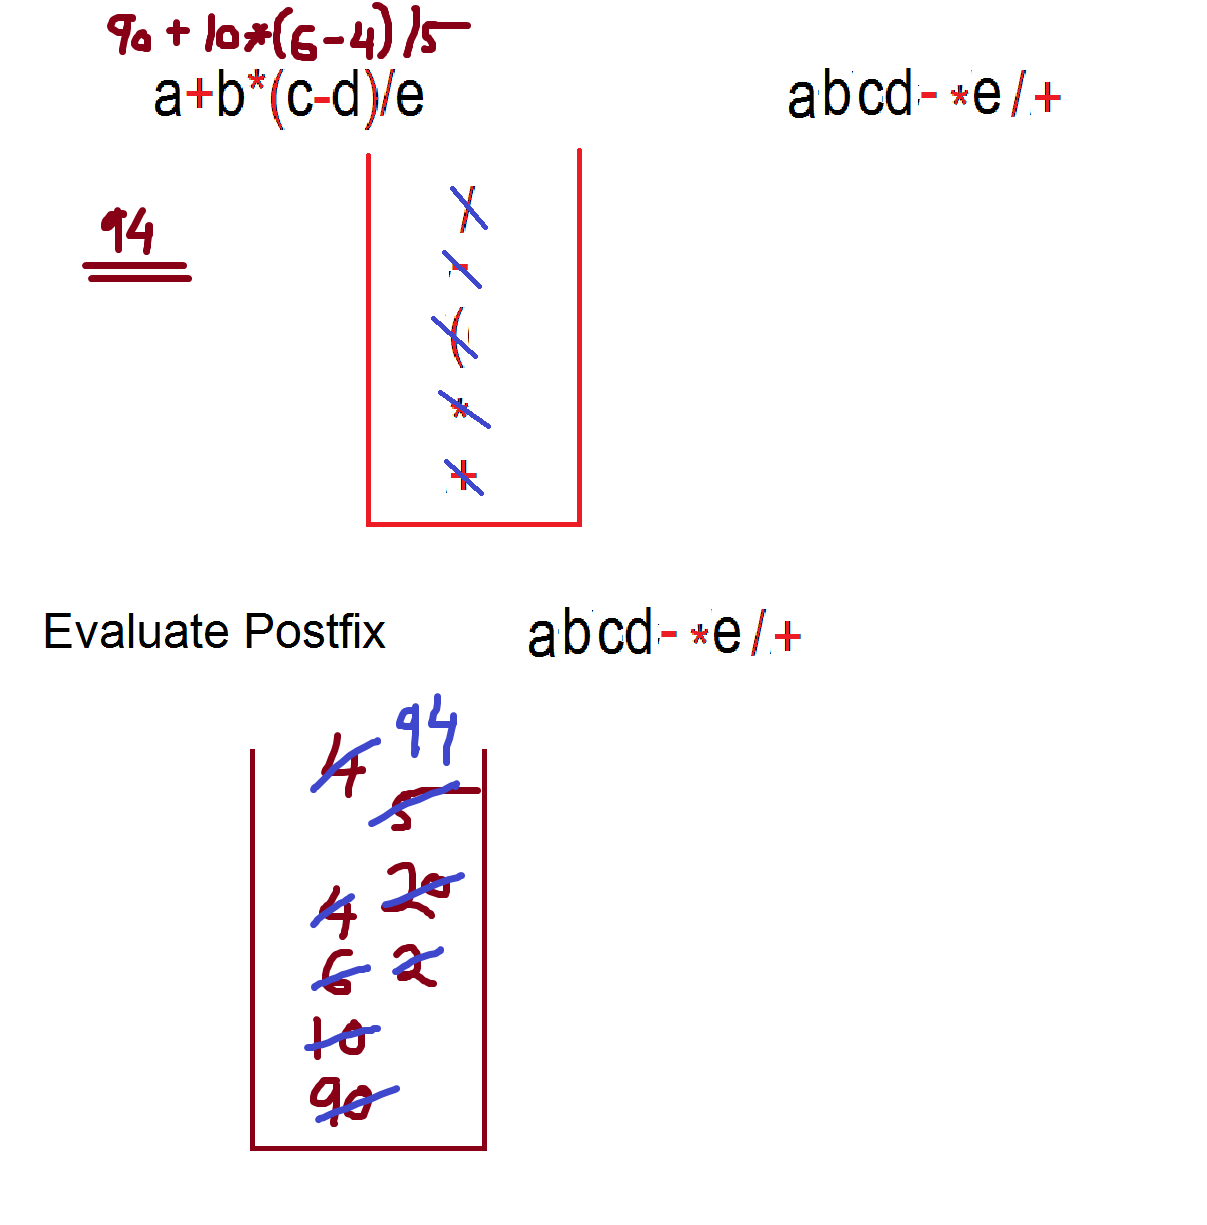 90 + 10*(6-4)/5
a+b*(c-d)/e
abcd- *e/+
94
/
-
(
*
+
Evaluate Postfix
abcd- *e/+
94
4
5
20
4
6 2
10
90